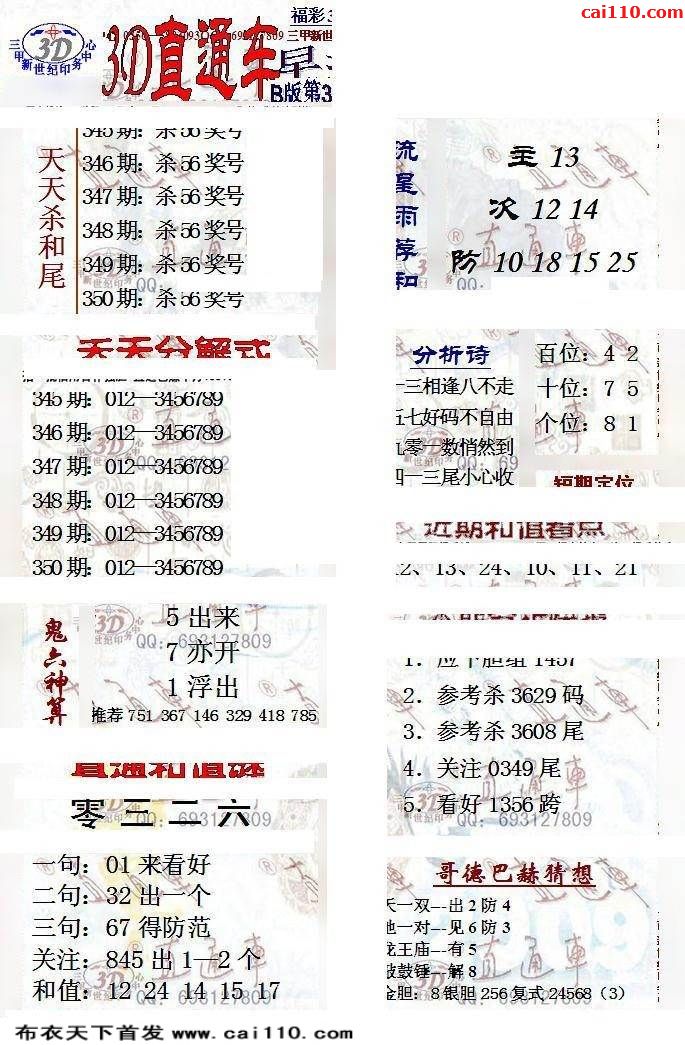 cai110.com
福彩3
三甲新世纪印务中心
3D
3D直通车
早
B版第3
天天杀和尾
345期：杀56奖号
346期：杀56奖号
347期：杀56奖号
348期：杀56奖号
349期：杀56奖号
350期：杀56奖号
流星雨荐和
主 13
次 12 14
防 10 18 15 25
天天分解式
345期：012—3456789
346期：012—3456789
347期：012—3456789
348期：012—3456789
349期：012—3456789
350期：012—3456789
分析诗
一三相逢八不走
五七好码不自由
九零一数悄然到
四一三尾小心收
百位：4 2
十位：7 5
个位：8 1
短期定位
近期和值看点
12、13、24、10、11、21
鬼六神算
5 出来
7 亦开
1 浮出
推荐 751 367 146 329 418 785
QQ：693127809
1．应下胆组1457
2．参考杀3629码
3．参考杀3608尾
4．关注0349尾
5．看好1356跨
QQ：693127809
直通和值谜
零三二六
一句：01来看好
二句：32出一个
三句：67得防范
关注：845出1—2个
和值：12 24 14 15 17
哥德巴赫猜想
天一双---出2防4
地一对---见6防3
龙王庙---有5
敲鼓锤---解8
金胆：8银胆256复式24568（3）
布衣天下首发 www.cai110.com